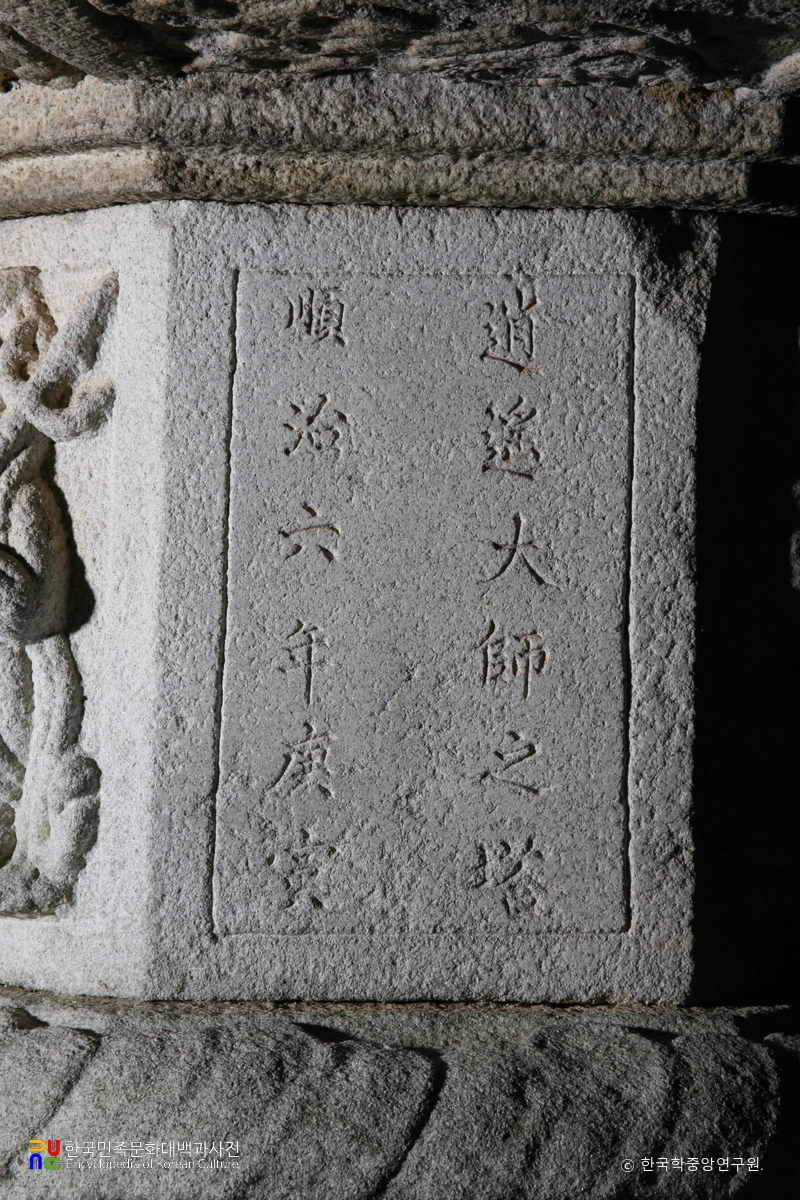 逍遙大師之塔
順治六年庚寅
한국민족문화대백과사전
Encyclopedia of Korean Culture
© 한국학중앙연구원.